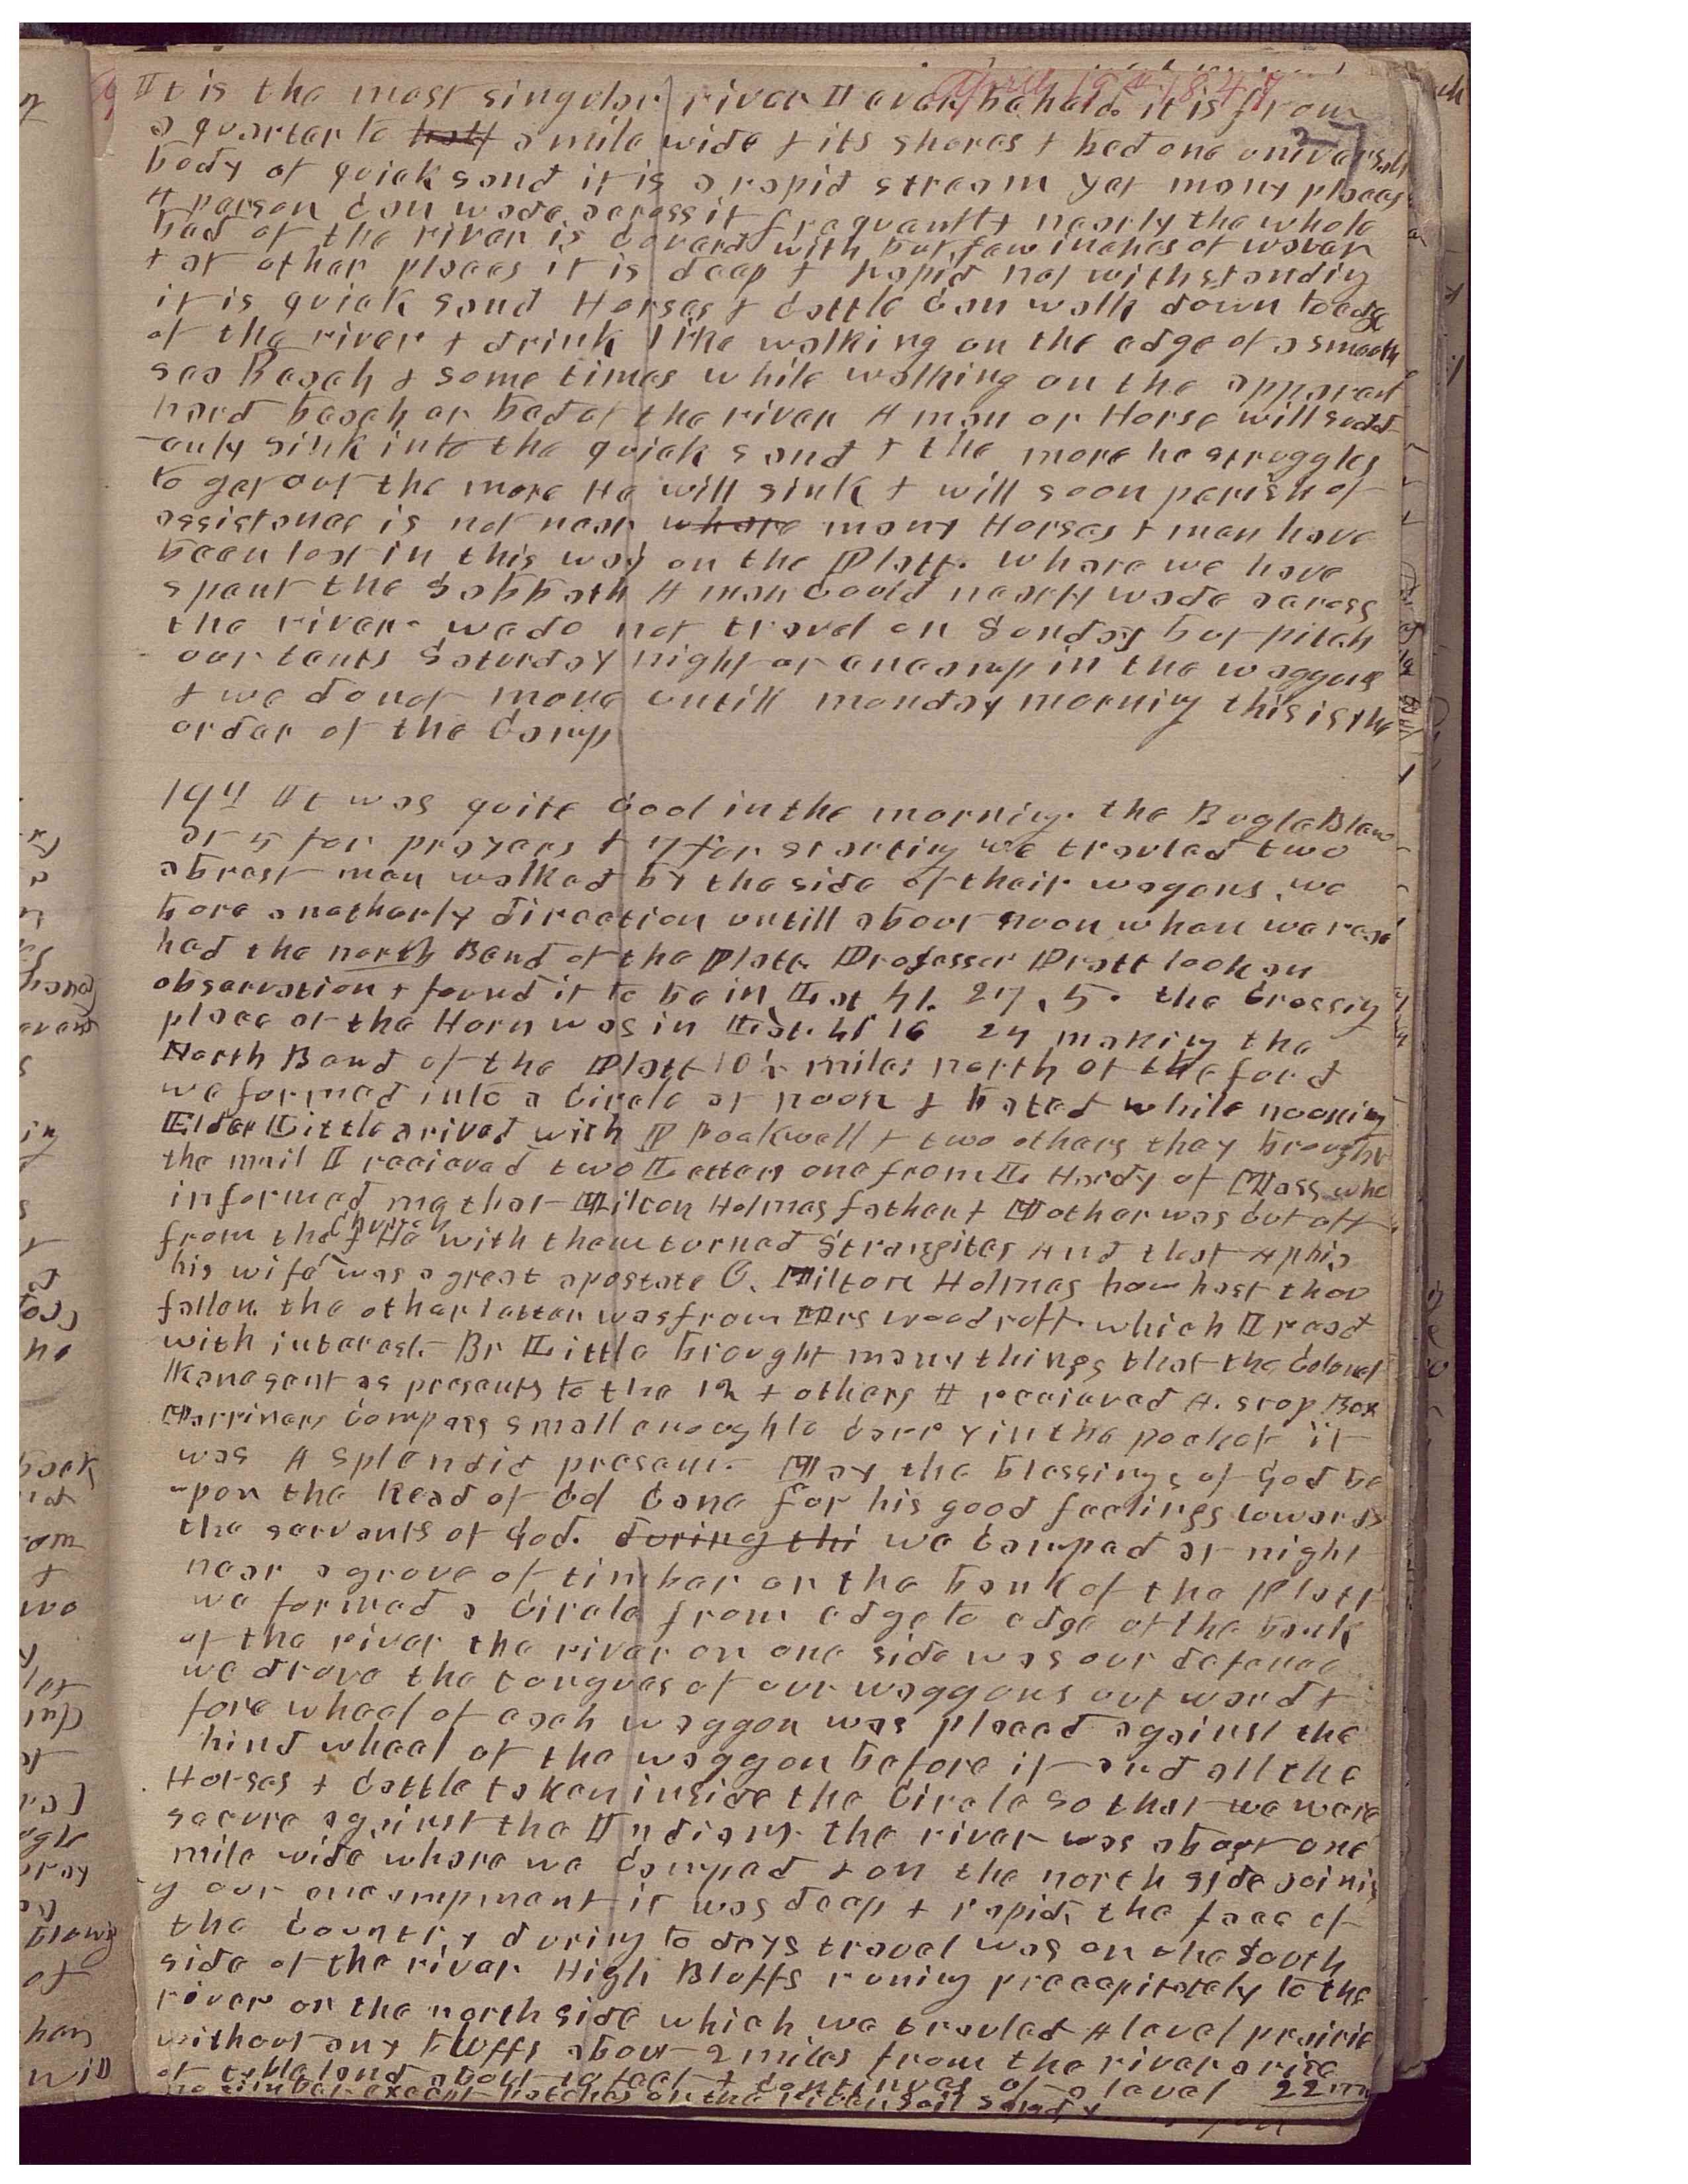 April 19th 1847
It is the most singular river I ever beheld. it is from
a quarter to half a mile wide & its shores & bed one universal
body of quick sand it is a rapid stream yet many places
A person can wade across it frequently nearly the whole
bed of the river is covered with but few inches of water
& at other places it is deep & rapid not withstanding
it is quick sand Horses & cattle can walk down to edge
of the river & drink like walking on the edge of a smooth
sea Beach & some times while walking on the apparent
hard beach or bed of the river A man or Horse will sudd-
enly sink into the quick sand & the more he struggles
to get out the more He will sink & will soon perish of
assistance is not near whare many Horses & men have
been lost in this way on the Platt. whare we have
spent the Sabbath A man could nearly wade across
the river. we do not travel on Sunday but pitch
our tents Saturday night or encamp in the waggons
& we do not move untill monday morning this is the
order of the Camp
19th It was quite cool in the morning. the Bugle Blew
at 5 for prayers & 7 for starting we travled two
abrest men walked by the side of their wagons, we
bore a notherly direction untill about noon when we reach
had the north Bend of the Platt. Professor Pratt look an
observation & found it to be in Lat 41. 27. 5. the crossing
place at the Horn was in Lat. 41 16 24 making the
North Bend of the Platt 10 ½ miles north of the ford
we formed into a circle at noon & bated while nooning
Elder Little arived with P Rockwell & two others they brought
the mail I recieved two Letters one from L Hardy of Mass who
informed me that Milton Holmes father & Mother was cut off
from the Church & He with them turned Strangites And that Aphia
his wife was a great apostate O. Milton Holmes how hast thou
fallen. the other letter was from Mrs Woodruff. which I read
with interest. Br Little brought many things that the Colonel
Kane sent as presents to the 12 & others I recieved A. stop. Box
Marriners compass small enough to carry in the pocket it
was A splendid present. May the blessings of God be
upon the head of Col Cane for his good feelings towards
the servants of God. during thi we camped at night
near a grove of timber on the bank of the Platt
we formed a circle from edge to edge of the bank
of the river the river on one side was our defence
we drove the tongues of our waggons out ward &
fore wheel of each waggon was placed against the
hind wheel of the waggon before it and all the
Horses & cattle taken inside the circle so that we ware
secure against the Indians. the river was about one
mile wide whare we camped & on the north side joinin
g our encampment it was deep & rapid. the face of
the country during to days travel was on the South
side of the river High Bluffs runing preecepitately to the
river on the north side which we travled A level prairie
without any bluffs about 2 miles from the river a rise
of table land about 10 feet & continues of a level 22 m
no timber except patches on the river, soil sandy